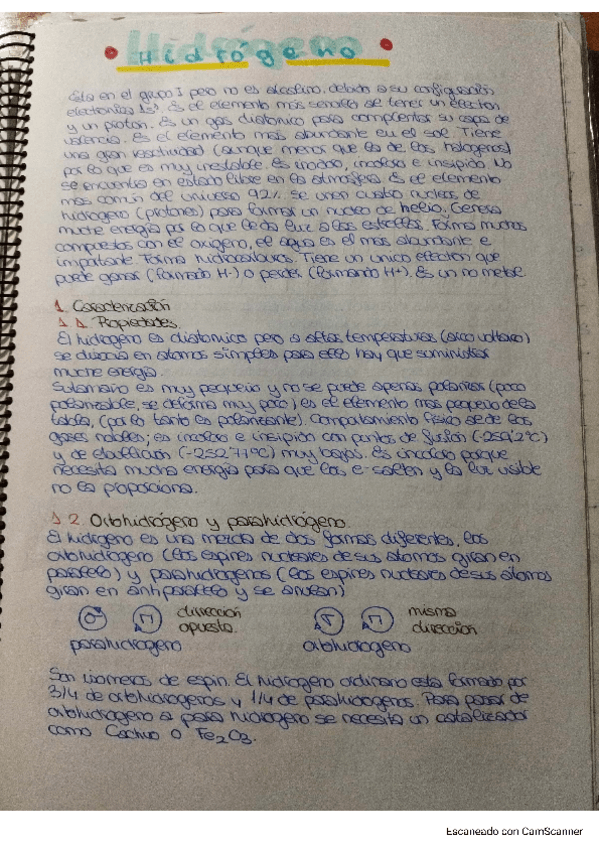 Hidrógeno
Esta en el grupo I pero no es alcalino. debido a su configuración
electronica 1s¹. Es el elemento más sencillo al tener un electron
y un proton. Es un gas diatomico para completar su capa de
valencia. Es el elemento mas abundante en el sol. Tiene
una gran reactividad (aunque menor que la de los halogenos)
por lo que es muy inestable. Es inodoro, incoloro e insipido. No
se encuentra en estado libre en la atmosfera. Es el elemento
mas común del universo 92%. Se unen cuatro nucleos de
hidrogeno (protones) para formar un nucleo de helio. Genera
mucha energia por lo que le da luz a las estrellas. Forma muchos
compuestos con el oxigeno, el agua es el mas abundante e
importante. Forma hidrocarburos. Tiene un unico electron que
puede ganar (formando H-) o perder (formando H+). Es un no metal.
1. Caracterización
1.1. Propiedades.
El hidrogeno es diatomico pero a altas temperaturas (arco voltaico)
se disocia en atomos simples para ello hay que suministrar
mucha energia.
Su tamaño es muy pequeño y no se puede apenas polarizar (poco
polarizable, se deforma muy poco) es el elemento mas pequeño de la
tabla, (por lo tanto es polarizante). Comportamiento fisico se de los
gases nobles; es incoloro e insipido con puntos de fusión (-259'2ºC)
y de ebullición (-252'77ºC) muy bajos. Es incoloro porque
necesita mucha energia para que los e- salten y la luz visible
no la proporciona.
1.2. Ortohidrógeno y parahidrógeno.
El hidrogeno es una mezcla de dos formas diferentes, los
ortohidrógeno (los espines nucleares de sus atomos giran en
paralelo) y parahidrogenos (los espines nucleares de sus átomos
giran en antiparalelo y se anulan)
dirección misma
opuesta. dirección
parahidrogeno ortohidrogeno
Son isomeros de espin. El hidrogeno ordinario esta formado por
3/4 de ortohidrogenos y 1/4 de parahidrogenos. Para pasar de
ortohidrogeno a para hidrogeno se necesita un catalizador
como Cactivo o Fe₂O₃.
Escaneado con CamScanner